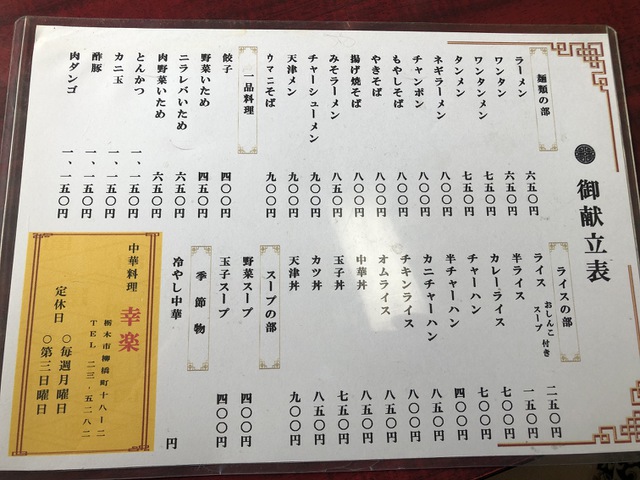 御献立表
麺類の部
ラーメン 六五〇円
ワンタン 六五〇円
ワンタンメン 七五〇円
タンメン 七五〇円
ネギラーメン 八〇〇円
チャンポン 八〇〇円
もやしそば 八〇〇円
やきそば 八〇〇円
揚げ焼そば 八〇〇円
みそラーメン 八五〇円
チャーシューメン 九〇〇円
天津メン 九〇〇円
ウマニそば 九〇〇円
一品料理
餃子 四〇〇円
野菜いため 四五〇円
ニラレバいため 六五〇円
肉野菜いため 六五〇円
とんかつ 一、一五〇円
カニ玉 一、一五〇円
酢豚 一、一五〇円
肉ダンゴ 一、一五〇円
ライスの部
ライス おしんこ スープ 付き 二五〇円
半ライス 一五〇円
カレーライス 七〇〇円
チャーハン 七〇〇円
半チャーハン 四〇〇円
カニチャーハン 八五〇円
チキンライス 八〇〇円
オムライス 八五〇円
中華丼 八五〇円
玉子丼 七五〇円
カツ丼 八五〇円
天津丼 九〇〇円
スープの部
野菜スープ 四〇〇円
玉子スープ 四〇〇円
季節物
冷やし中華 円
中華料理 幸楽
栃木市柳橋町十八ー二
TEL 二三・五二八二
定休日 〇毎週月曜日
〇第三日曜日